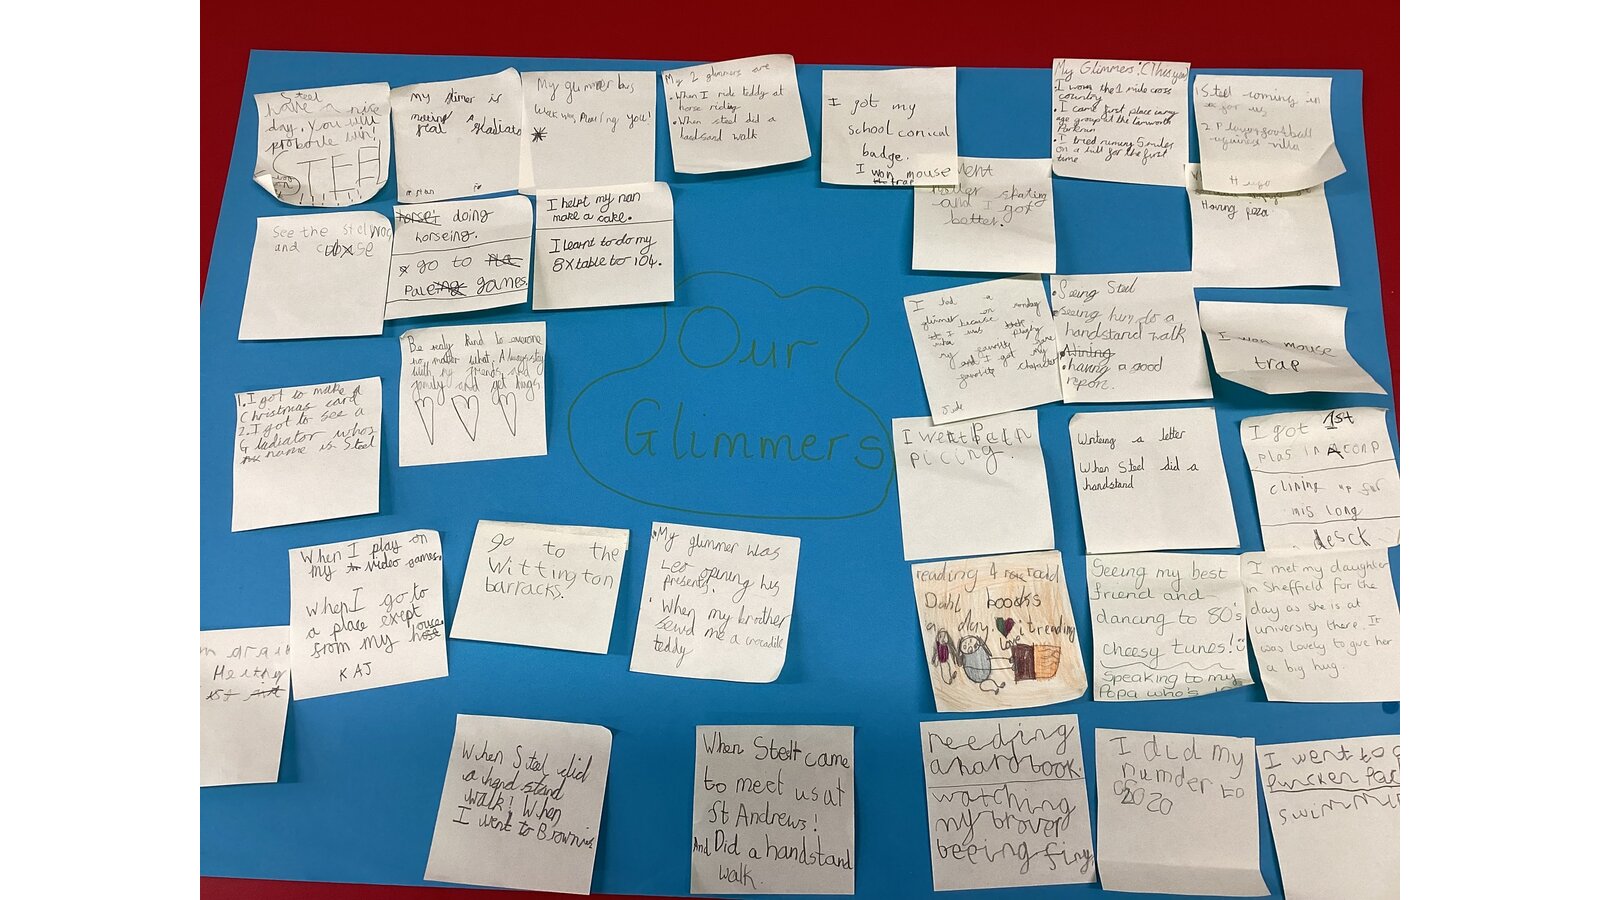 Steel
have a nice
day. you will
probotle win!
STEEL
!!!!!!!
My glimer is
meeting a gladiator
real
My glimmer was
was, meeting you!
My 2 glimmers are
• When I ride teddy at
horse riding
• When steel did a
handsand walk
I got my
school conical
badge.
I won mouse
trap
My Glimmers: (This year
• I won the 1 mile cross
country
• I came first place in my
age group at the tamworth
Parkrun
• I tried running 5 miles
on a hill for the first
time
1. Steel coming in
for us
2. Playing football
against villa
Hugo
See the steel
and
horse: doing
horseing.
go to
games.
I helpt my nan
make a cake.
I learnt to do my
8x table to 104.
skating
and I got
better.
Having pizza
Our
Glimmers
Be realy kind to everyone
no matter what. Always stay
with my friends and
family and get hugs.
I had a
glimmer on sunday
because
I was playing
my favourite game
and I got my
favourite character
Jude
• Seeing Steel
• Seeing him do a
handstand walk
• having a good
report.
I won mouse
trap
1. I got to make a
Christmas card
2. I got to see a
Gladiator whos
name is Steel
I went
picing.
Writeing a letter
When Steel did a
handstand
I got 1st
plas in A conp
clining up for
mis long
desck
When I play on
my video games.
When I go to
a place exept
from my house
KAJ
go to the
Wittington
barracks.
• My glimmer was
Leo opening his
presents.
• When my brother
sewd me a crocadile
teddy
reading 4 Dahl
books
a day. reading
Love
Seeing my best
friend and
dancing to 80's
cheesy tunes!
Speaking to my
Popa who's
I met my daughter
in Sheffield for the
day as she is at
university there. It
was lovely to give her
a big hug.
When Steel did
a hand stand
walk! When
I went to Brownies
When Steel came
to meet us at
St Andrews!
And Did a handstand
walk.
reeding
a hard book.
watching
my brover
beeing finy
I did my
numder to
2020
I went to
swimming